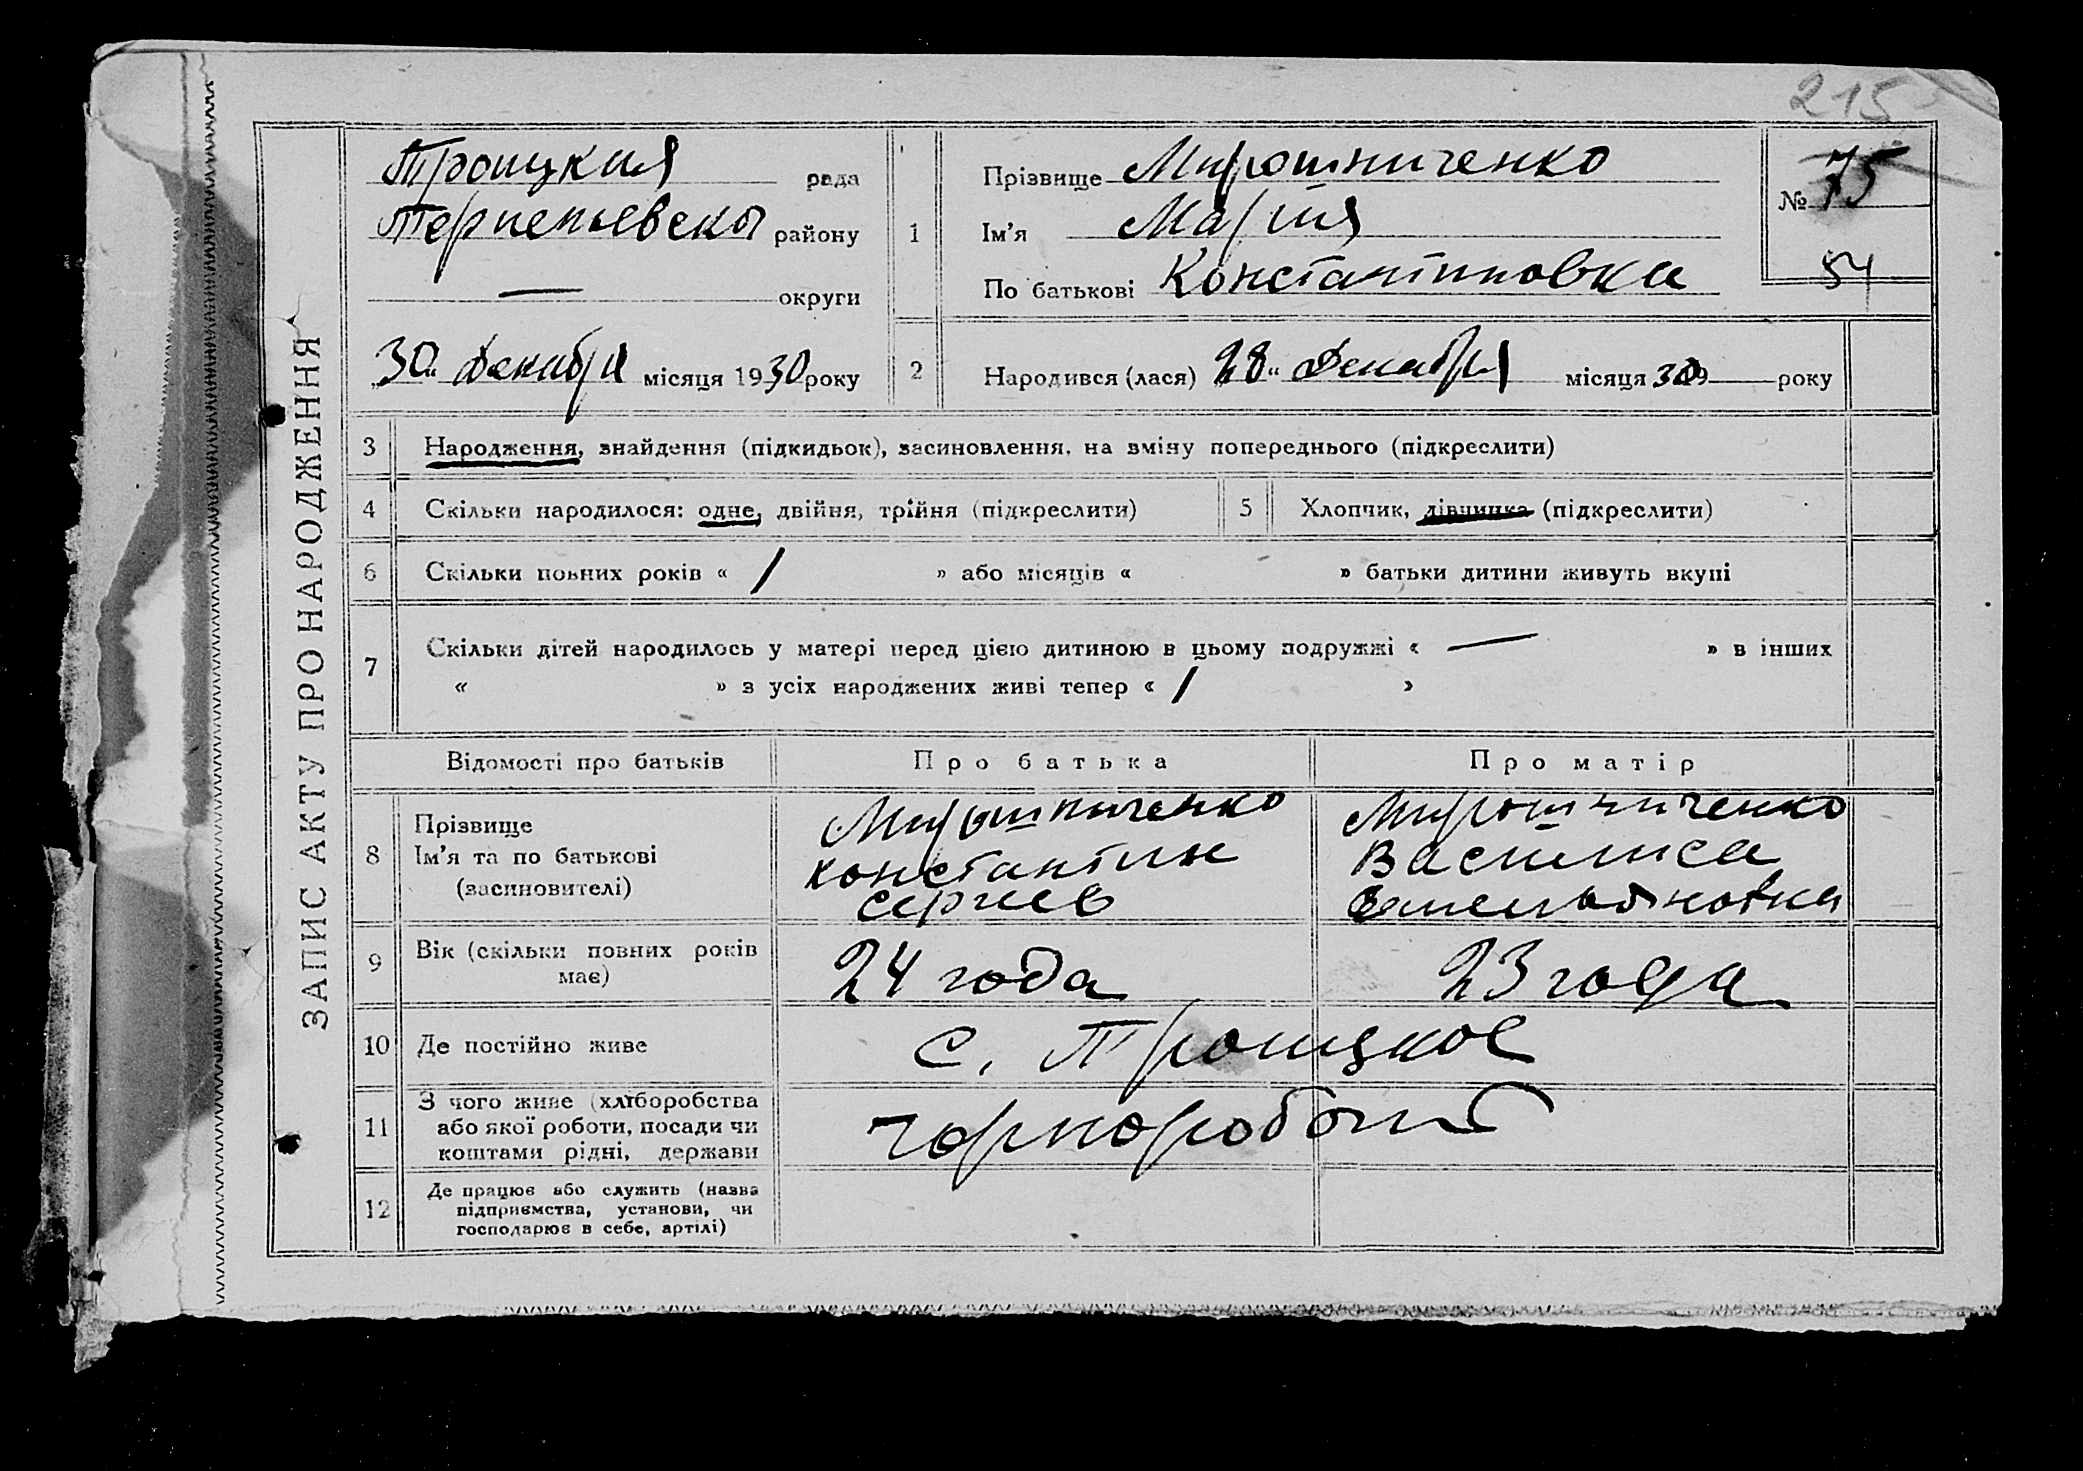 215
ЗАПИС АКТУ ПРО НАРОДЖЕННЯ
Троицкия рада
Терпеньевски району
— округи
30 " Декабря місяця 1930 року
1
Прізвище Мирошниченко
Ім'я Мария
По батькові Константиновка
№ 75
54
2 Народився (лася) 28 " Декабря місяця 30 року
3 Народження, знайдення (підкидьок), засиновлення, на зміну попереднього (підкреслити)
4 Скільки народилося: одне, двійня, трійня (підкреслити)
5 Хлопчик, дівчинка (підкреслити)
6 Скільки повних років « / » або місяців « » батьки дитини живуть вкупі
7 Скільки дітей народилось у матері перед цією дитиною в цьому подружжі « — » в інших
« » з усіх народжених живі тепер « / »
Відомості про батьків Про батька Про матір
8 Прізвище
Ім'я та по батькові
(засиновителі)
Мирошниченко
Константин
Сергиев
Мирошниченко
Василиса
Емельяновна
9 Вік (скільки повних років
має)
24 года
23 года
10 Де постійно живе
с. Троицкое
11 З чого живе (хліборобства
або якої роботи, посади чи
коштами рідні, держави
чорноробочий
12 Де працює або служить (назва
підприємства, установи, чи
господарює в себе, артілі)